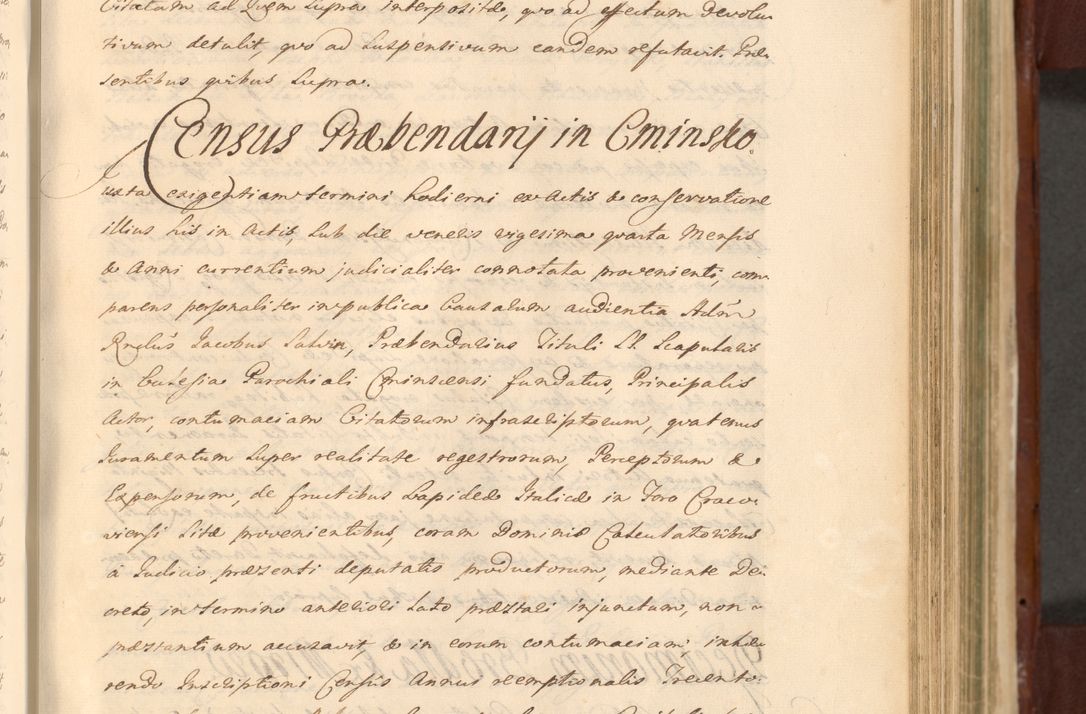 Citatum ad Quem Supra interpositæ, quo ad effectum Devolu
tivum detulit, quo ad Suspensivum eandem refutavit. Præ-
sentibus quibus Supra.
Census Præbendarij in Cminsko.
Juxta exigentiam termini hodierni ex Actis & conservatione
illius his in Actis, Sub die veneris vigesima quarta Mensis
& Anni currentium judicialiter connotata provenienti, com-
parens personaliter in publica Causarum audientia Adm̃
Rndus Jacobus, Præbendarius Tituli SS. Scapularis
in Ecclesia Parochiali Cminscensi fundatus, Principalis
Actor, contumaciam Citatorum infrascriptorum, quatenus
Juramentum Super realitate regestrorum, Perceptorum &
Expensorum, de fructibus Lapideæ Italicæ in Foro Craco-
viensi Sitæ provenientibus, coram Dominis Calculatoribus
á Judicio præsenti deputatis productorum, mediante De-
creto, in termino anteriori Lato præstari injunctum, non
præstantium accusavit, & in eorum contumaciam, inhæ
rendo Inscriptioni Census Annui reemptionalis Trecento-